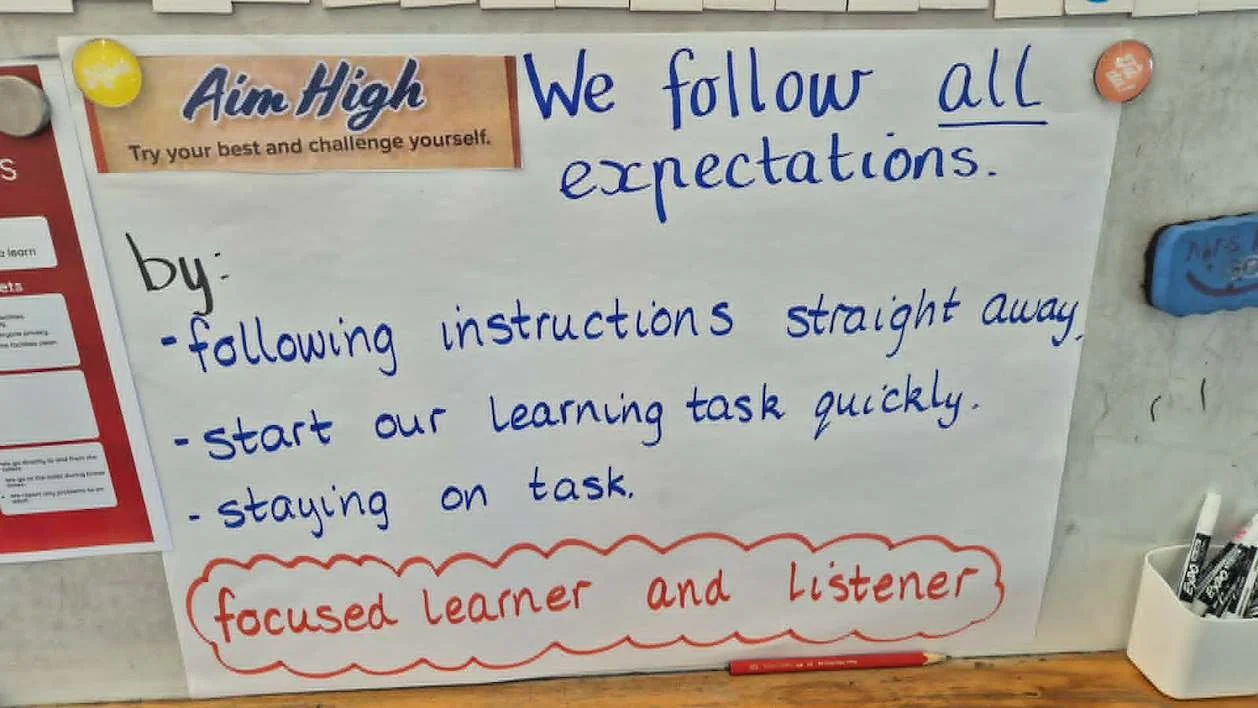 Aim High
Try your best and challenge yourself.
We follow all
expectations.
by:
- following instructions straight away.
- start our learning task quickly.
- staying on task.
focused learner and listener
s
learn
ets